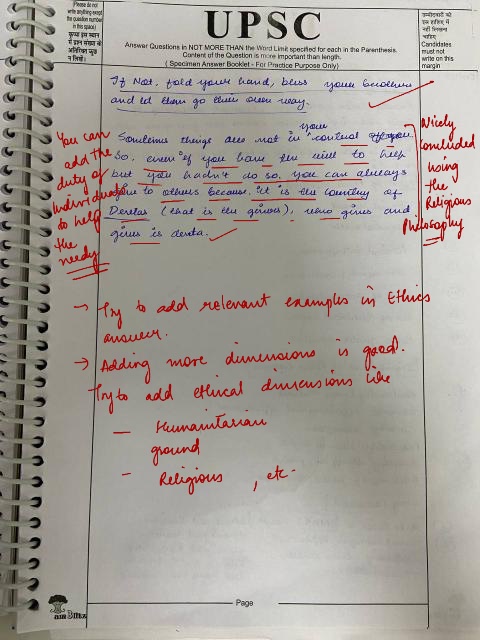 Please do not
write anything except
the question number
in this space)
कृपया इस स्थान
में प्रश्न संख्या के
अतिरिक्त कुछ
न लिखें।
UPSC
Answer Questions in NOT MORE THAN the Word Limit specified for each in the Parenthesis.
Content of the Question is more important than length.
( Specimen Answer Booklet - For Practice Purpose Only)
उम्मीदवारों को
इस हाशिए में
नहीं लिखना
चाहिए
Candidates
must not
write on this
margin
If Not, fold your hand, bless your brothers
and let them go their own way.
Sometimes things are not in your control
So, even if you have the will to help
but you hadn't do so, you can always
to others because it is the country of
Devtas (that is the givers), who gives and
gives is devta.
You can
add the
duty of
Individuals
to help
the
needy
Nicely
concluded
using
the
Religious
Philosophy
→ Try to add relevant examples in Ethics
answer.
→ Adding more dimensions is good.
Try to add ethical dimensions like
— Humanitarian
ground
- Religious, etc.
Page